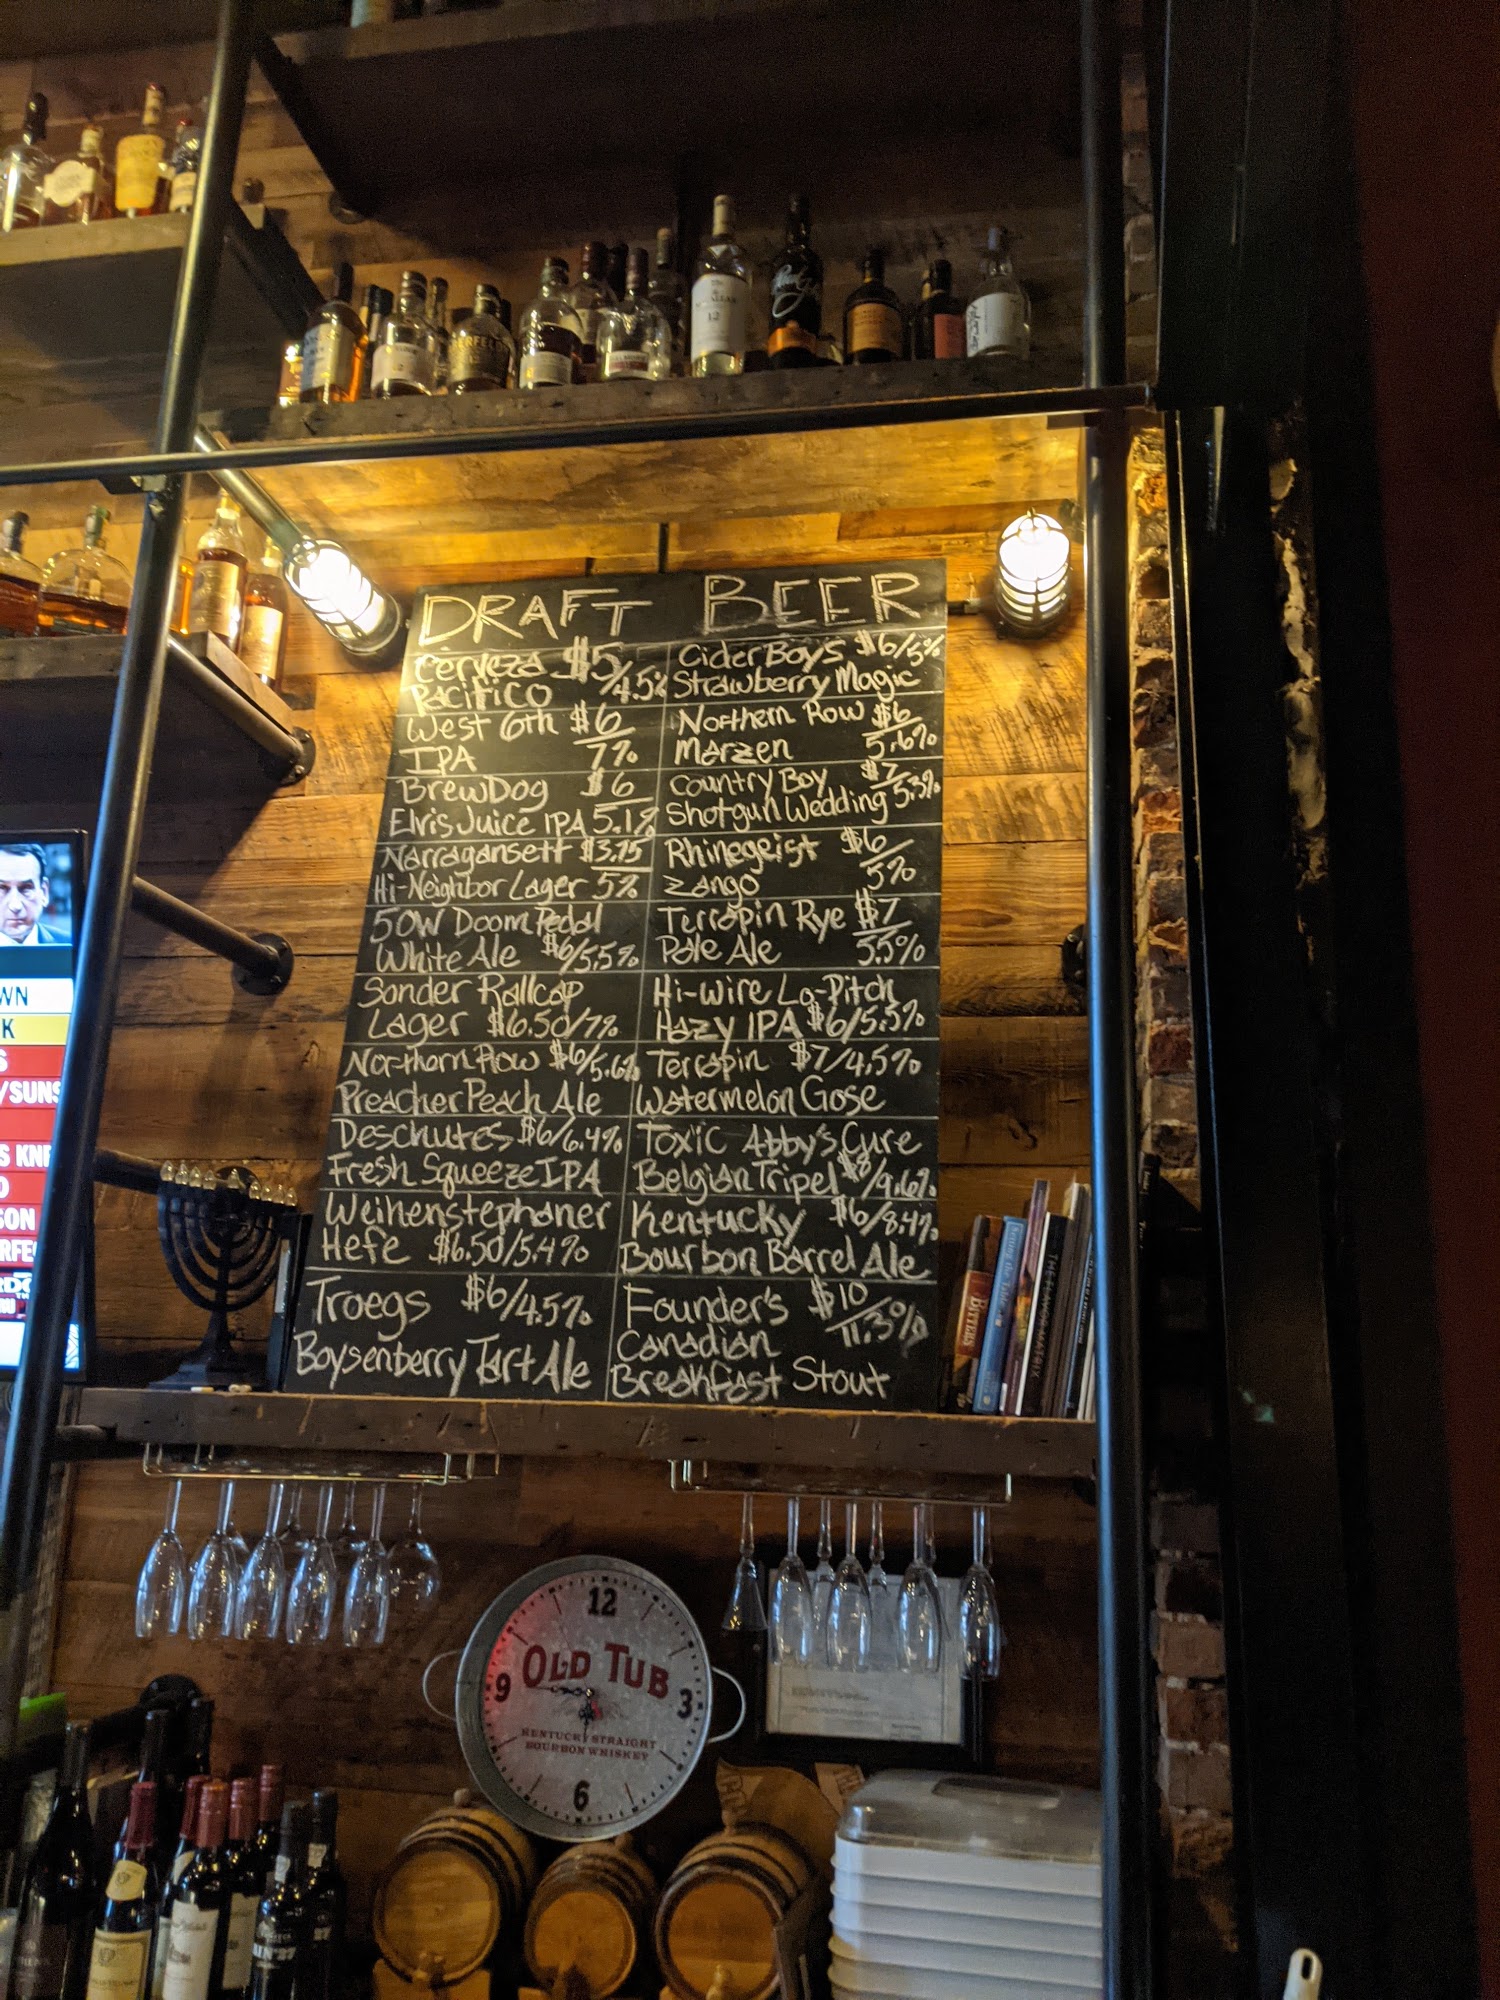 DRAFT BEER
Cerveza $5/4.5%
Pacifico
West 6th $6
IPA 7%
BrewDog $6
Elvis Juice IPA 5.1%
Narragansett $3.75
Hi-Neighbor Lager 5%
50W Doom Pedal
White Ale $6/5.5%
Sonder Rallcap
Lager $6.50/7%
Northern Row $6/5.6%
Preacher Peach Ale
Deschutes $6/6.4%
Fresh Squeeze IPA
Weihenstephaner
Hefe $6.50/5.4%
Troegs $6/4.5%
Boysenberry Tart Ale
Cider Boy's $6/5%
Strawberry Magic
Northern Row $6
Marzen 5.6%
Country Boy $7
Shotgun Wedding 5.3%
Rhinegeist $6
Zango 5%
Terrapin Rye $7
Pale Ale 5.5%
Hi-Wire Lo-Pitch
Hazy IPA $6/5.5%
Terrapin $7/4.5%
Watermelon Gose
Toxic Abby's Cure
Belgian Tripel $8/9.6%
Kentucky $6/8.4%
Bourbon Barrel Ale
Founder's $10
Canadian 11.3%
Breakfast Stout
WN
K
S
/SUNS
S KNI
O
SON
RFE
BITTERS
THE FLAVOR MATRIX
12
OLD TUB
9
3
KENTUCKY STRAIGHT
BOURBON WHISKEY
6
12